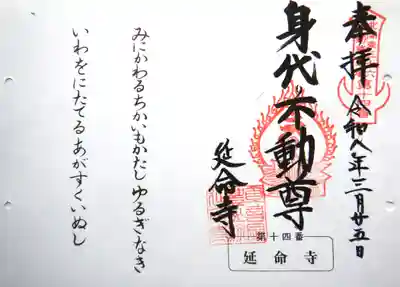 奉拝 令和八年三月廿五日
身代不動尊
延命寺
第十四番
延命寺
みにかわるちかいもかたし ゆるぎなき
いわをにたてるあがすくいぬし